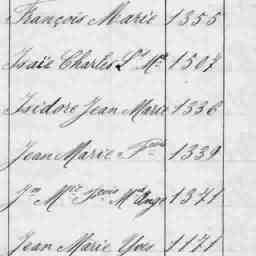 François Marie 1355
Isaïe Charles Lt Me 1507
Isidore Jean Marie 1336
Jean Marie Fcois 1339
Jn Mie Fcois Ange 1371
Jean Marie Yves 1171